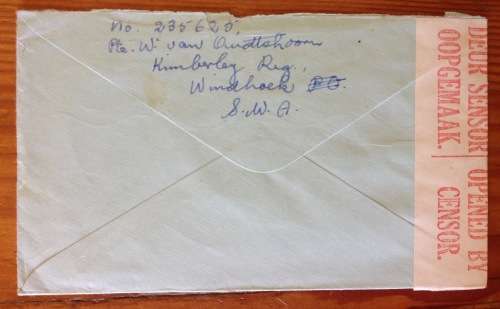 No. 235625,
Pte. W. van Oudtshoorn
Kimberley Reg.,
Windhoek
S.W.A.
DEUR SENSOR | OPENED BY
OOPGEMAAK. | CENSOR.